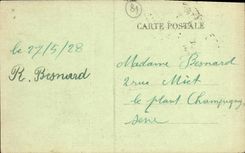 81
CARTE POSTALE
le 27/5/28
R. Besnard
Madame Besnard
2 rue Miet
le plant Champigny
Seine